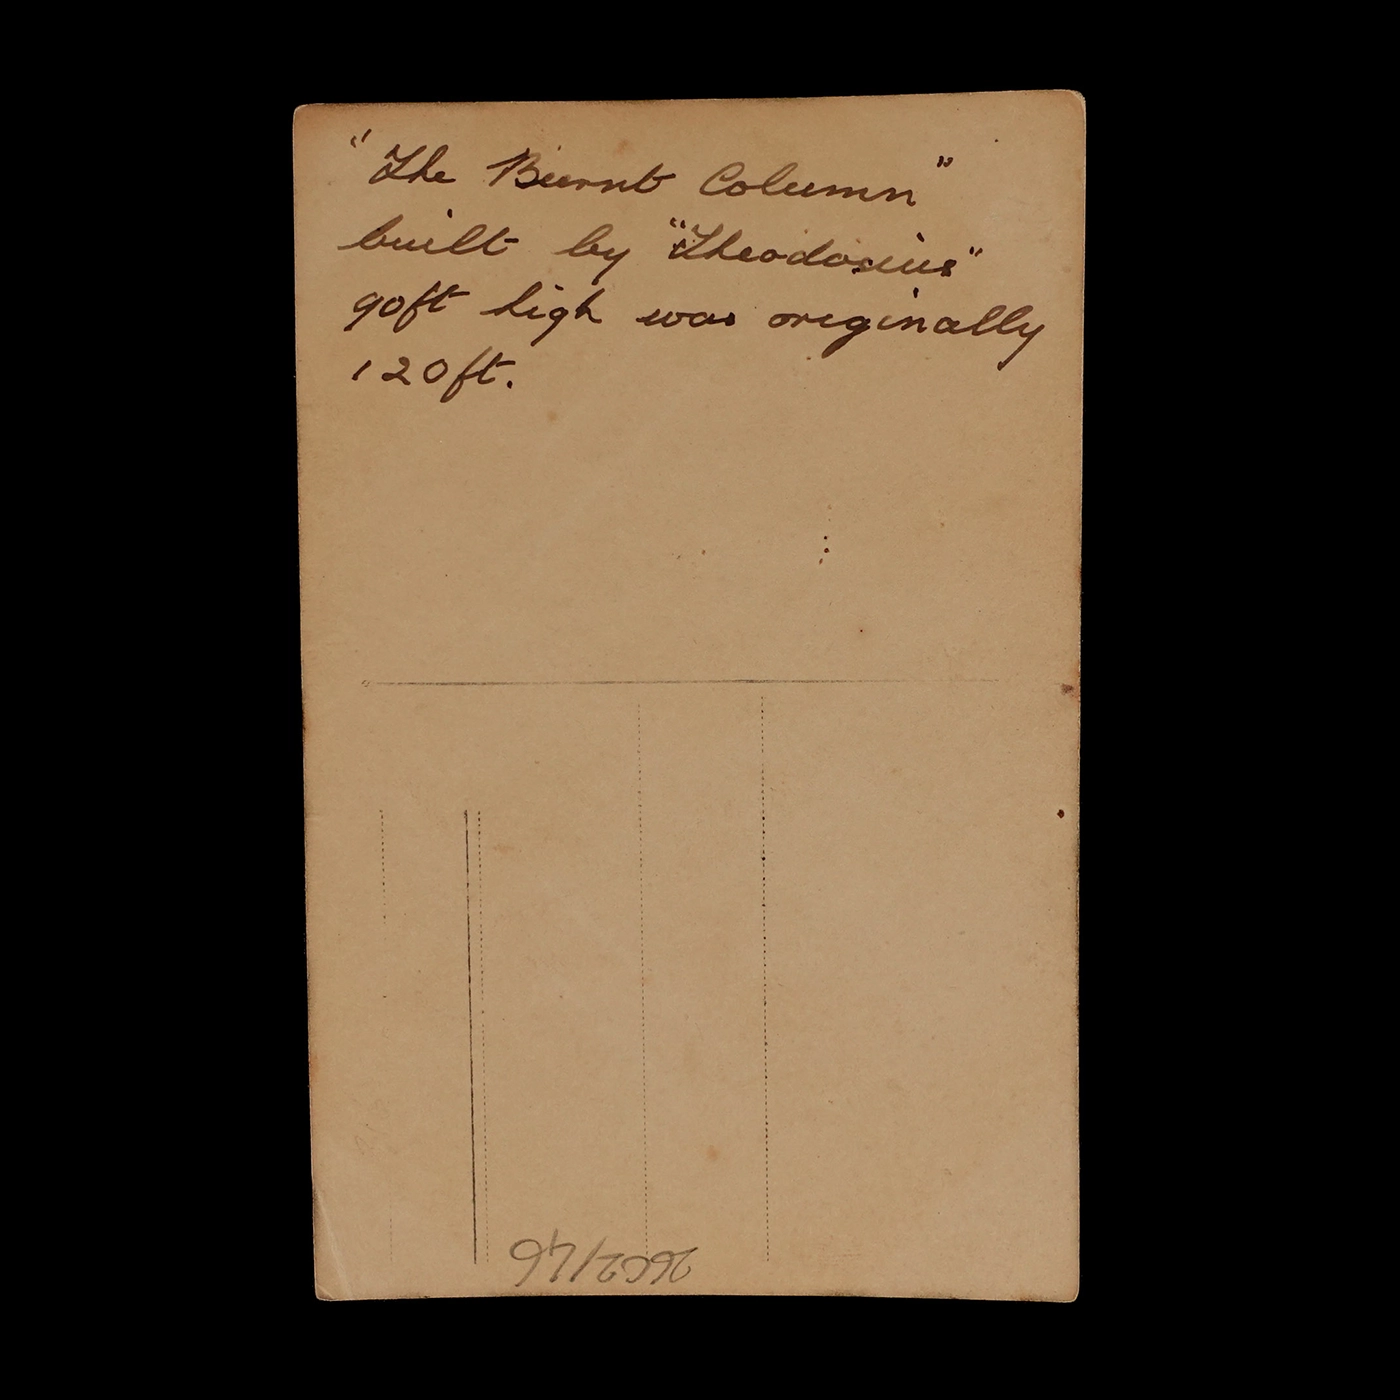 "The Burnt Column"
built by "Theodosius"
90ft high was originally
120ft.